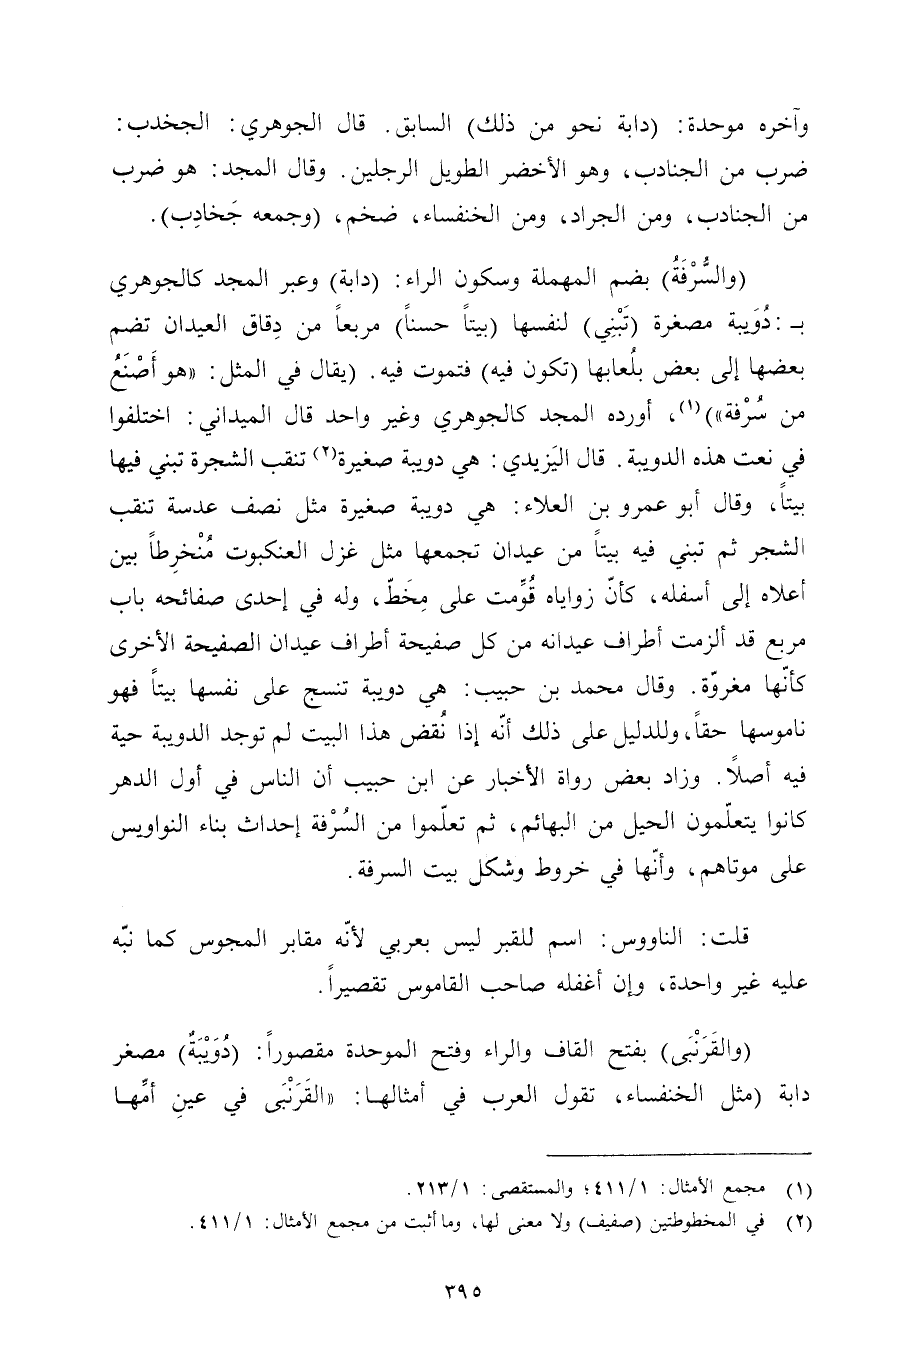 وآخره موحدة: (دابة نحو من ذلك) السابق. قال الجوهري: الجخدب:
ضرب من الجنادب، وهو الأخضر الطويل الرجلين. وقال المجد: هو ضرب
من الجنادب، ومن الجراد، ومن الخنفساء، ضخم، (وجمعه جَخادِب).
(والسُّرْفَةُ) بضم المهملة وسكون الراء: (دابة) وعبر المجد كالجوهري
بـ :دُوَيبة مصغرة (تَبْنِي) لنفسها (بيتاً حسناً) مربعاً من دِقاق العيدان تضم
بعضها إلى بعض بلُعابها (تكون فيه) فتموت فيه. (يقال في المثل: «هو أَصْنَعُ
من سُرْفة»)(١)، أورده المجد كالجوهري وغير واحد قال الميداني: اختلفوا
في نعت هذه الدويبة. قال اليَزيدي: هي دويبة صغيرة(٢) تنقب الشجرة تبني فيها
بيتاً، وقال أبو عمرو بن العلاء: هي دويبة صغيرة مثل نصف عدسة تنقب
الشجر ثم تبني فيه بيتاً من عيدان تجمعها مثل غزل العنكبوت مُنْخرِطاً بين
أعلاه إلى أسفله، كأنّ زواياه قُوِّمت على مِخَطّ، وله في إحدى صفائحه باب
مربع قد ألزمت أطراف عيدانه من كل صفيحة أطراف عيدان الصفيحة الأخرى
كأنّها مغروّة. وقال محمد بن حبيب: هي دويبة تنسج على نفسها بيتاً فهو
ناموسها حقاً، وللدليل على ذلك أنّه إذا نُقض هذا البيت لم توجد الدويبة حية
فيه أصلاً. وزاد بعض رواة الأخبار عن ابن حبيب أن الناس في أول الدهر
كانوا يتعلّمون الحيل من البهائم، ثم تعلّموا من السُرْفة إحداث بناء النواويس
على موتاهم، وأنّها في خروط وشكل بيت السرفة.
قلت: الناووس: اسم للقبر ليس بعربي لأنّه مقابر المجوس كما نبّه
عليه غير واحدة، وإن أغفله صاحب القاموس تقصيراً.
(والقَرَنْبَى) بفتح القاف والراء وفتح الموحدة مقصوراً: (دُوَيْبَةٌ) مصغر
دابة (مثل الخنفساء، تقول العرب في أمثالها: «القَرَنْبَى في عينِ أمِّها
(١) مجمع الأمثال: ٤١١/١؛ والمستقصى: ٢١٣/١.
(٢) في المخطوطتين (صفيف) ولا معنى لها، وما أثبت من مجمع الأمثال: ٤١١/١.
٣٩٥